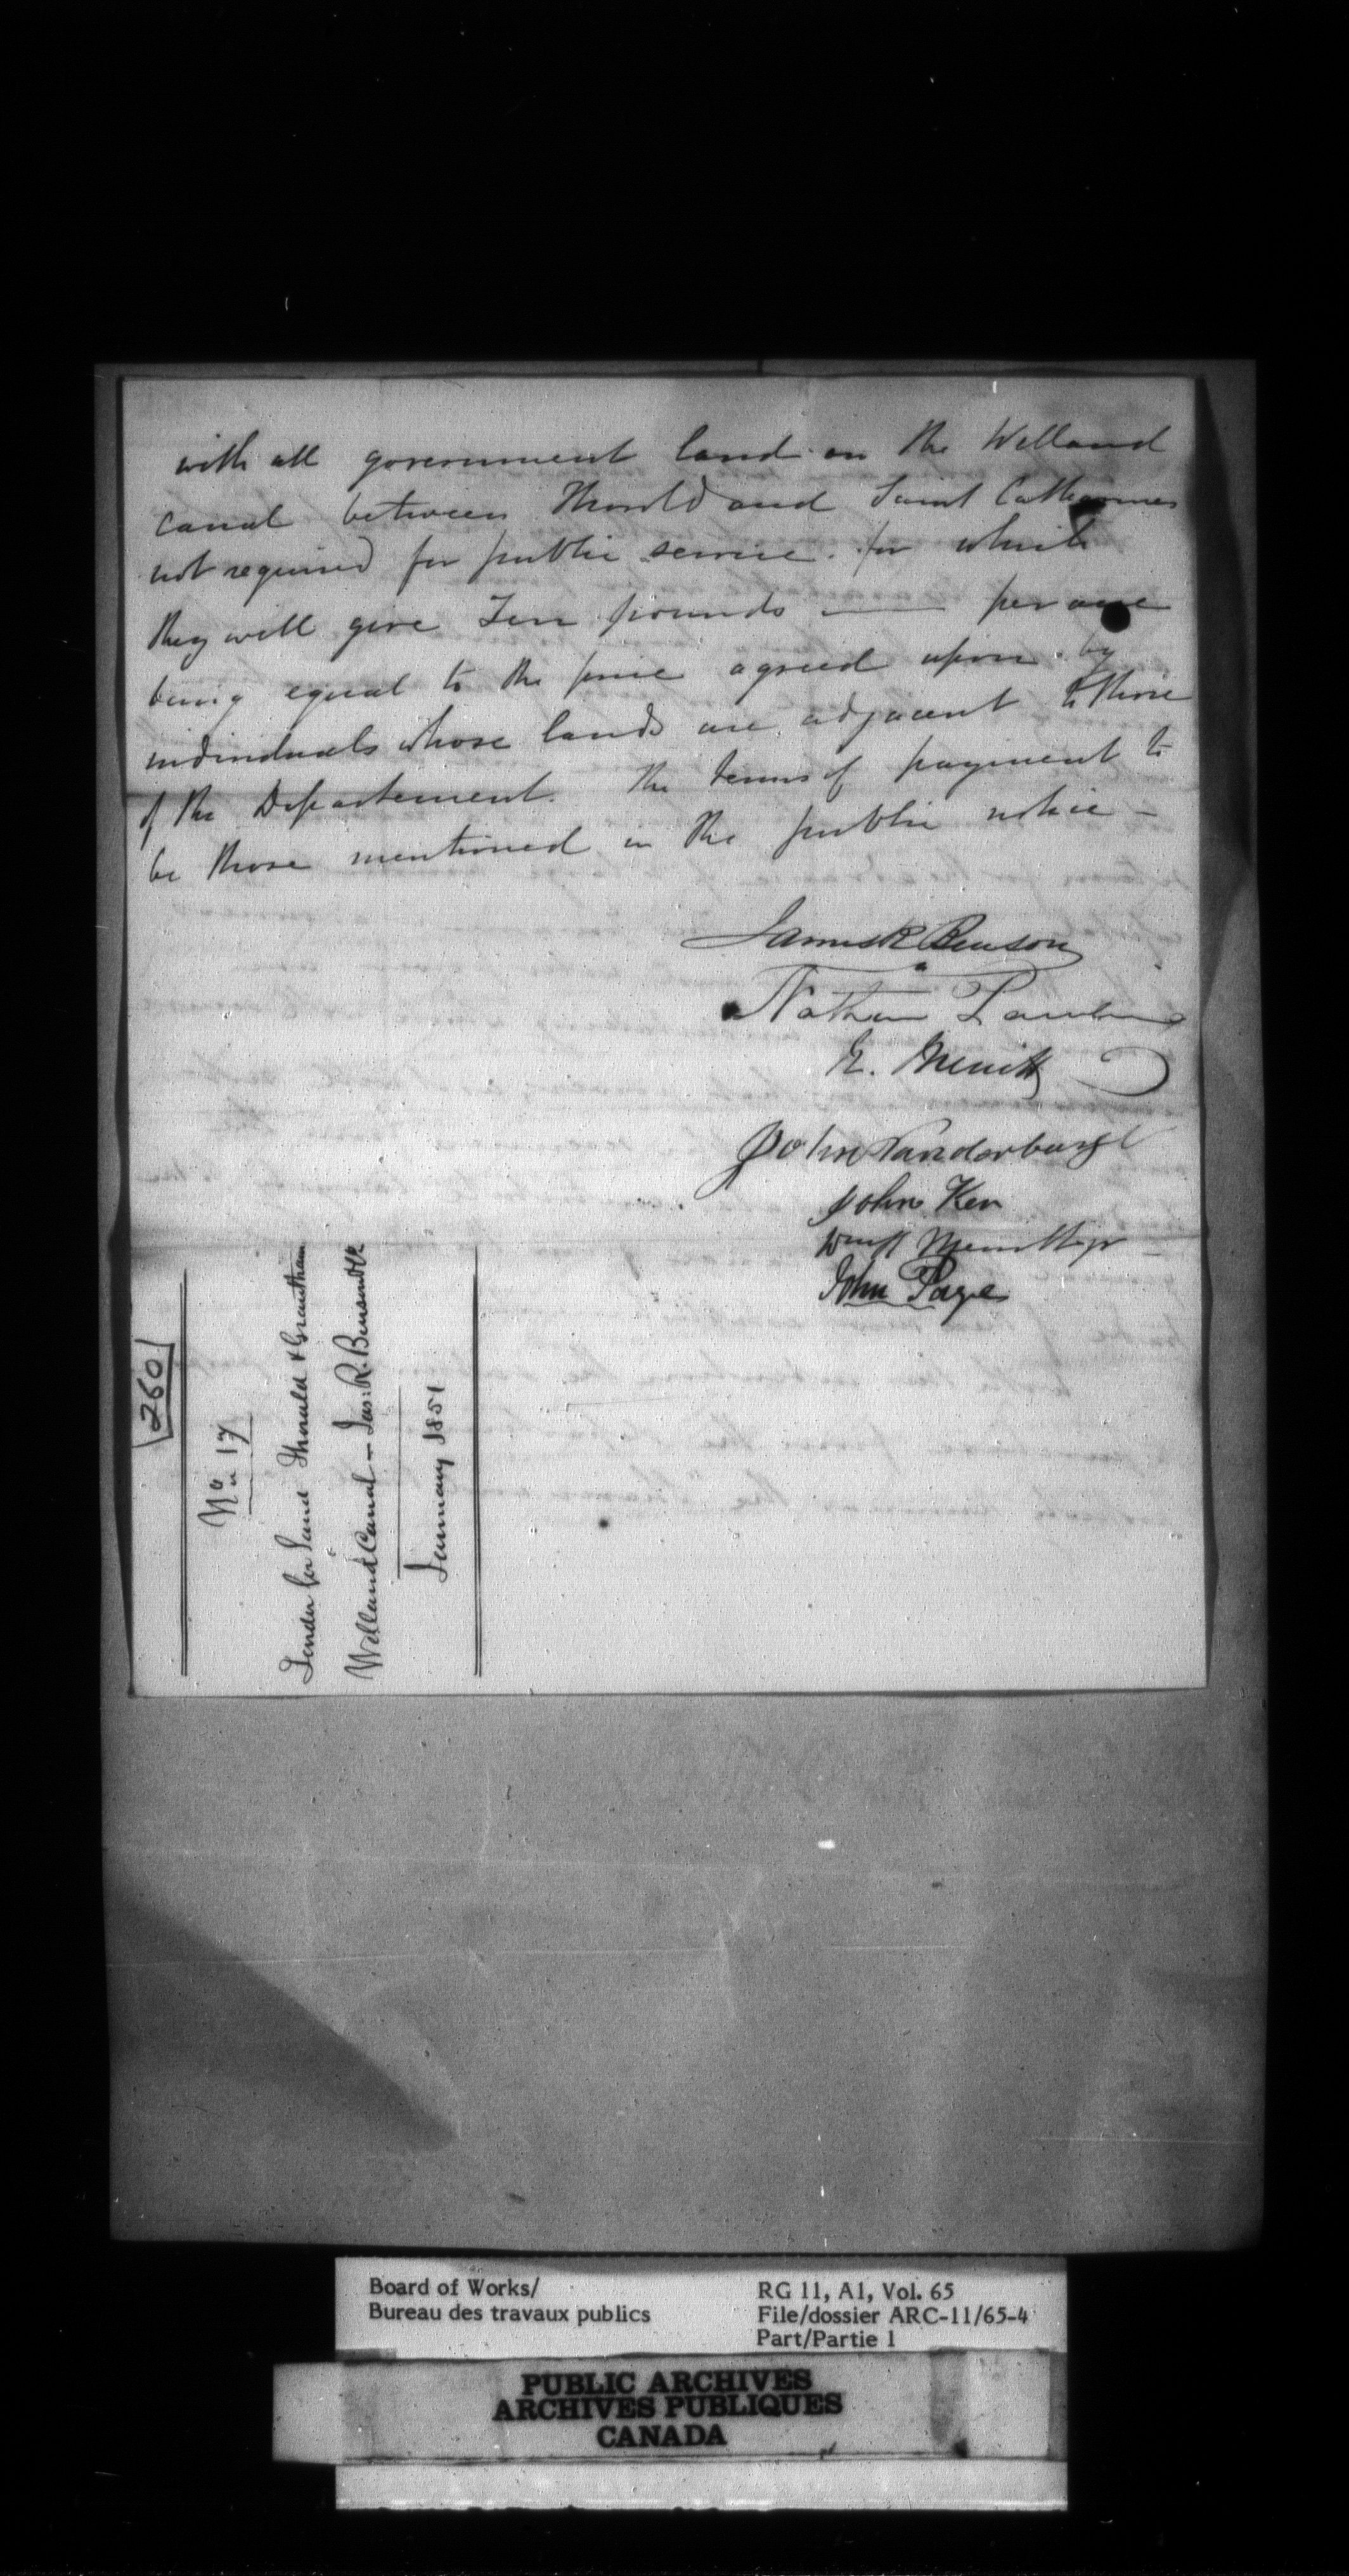 with all government land on the Welland
canal between Thorold and Saint Catharines
not required for public service. for which
they will give Ten pounds — per acre
being equal to the price agreed upon by
individuals whose lands are adjacent to those
of the Departement. The terms of payment to
be those mentioned in the public notice -
James R Benson
Nathan
Merritt
John Vanderburgh
John Ker
Merritt jr
John Page
260
No 17
Tender for Land Thorold & Grantham
Welland Canal — Jas: R. Benson &
January 1851
Board of Works/
Bureau des travaux publics
RG 11, A1, Vol. 65
File/dossier ARC-11/65-4
Part/Partie 1
PUBLIC ARCHIVES
ARCHIVES PUBLIQUES
CANADA